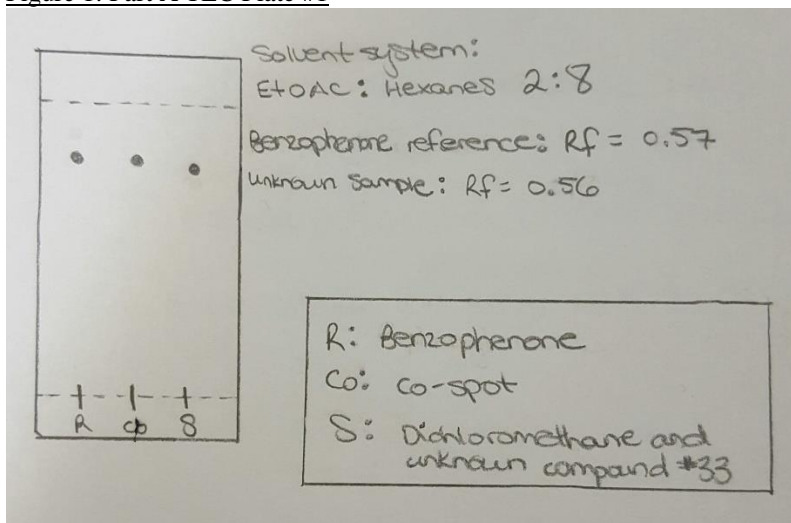 Figure 1. Part A TLC Plate #1
Solvent system:
EtOAC: Hexanes 2:8
Benzophenone reference: Rf = 0.57
Unknown Sample: Rf = 0.56
R: Benzophenone
Co: co-spot
S: Dichloromethane and
unknown compound #33
R co S